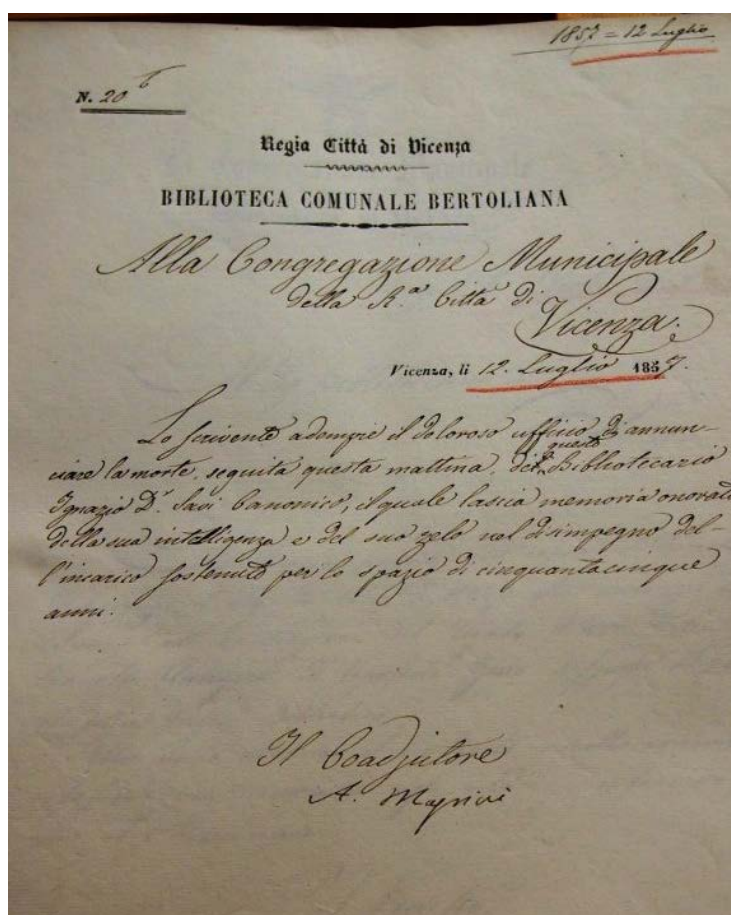 1857 = 12 Luglio
N. 20 b
Regia Città di Vicenza
BIBLIOTECA COMUNALE BERTOLIANA
Alla Congregazione Municipale
della R.a Città di
Vicenza.
Vicenza, li 12. Luglio 1857.
Lo scrivente adempie il doloroso ufficio di annun-
questo
ciare la morte, seguita questa mattina, di Bibliotecario
Ignazio Dr. Savi Canonico, il quale lascia memoria onorata
della sua intelligenza e del suo zelo nel disimpegno del-
l'incarico sostenuto per lo spazio di cinquantacinque
anni.
Il Coadjutore
A.